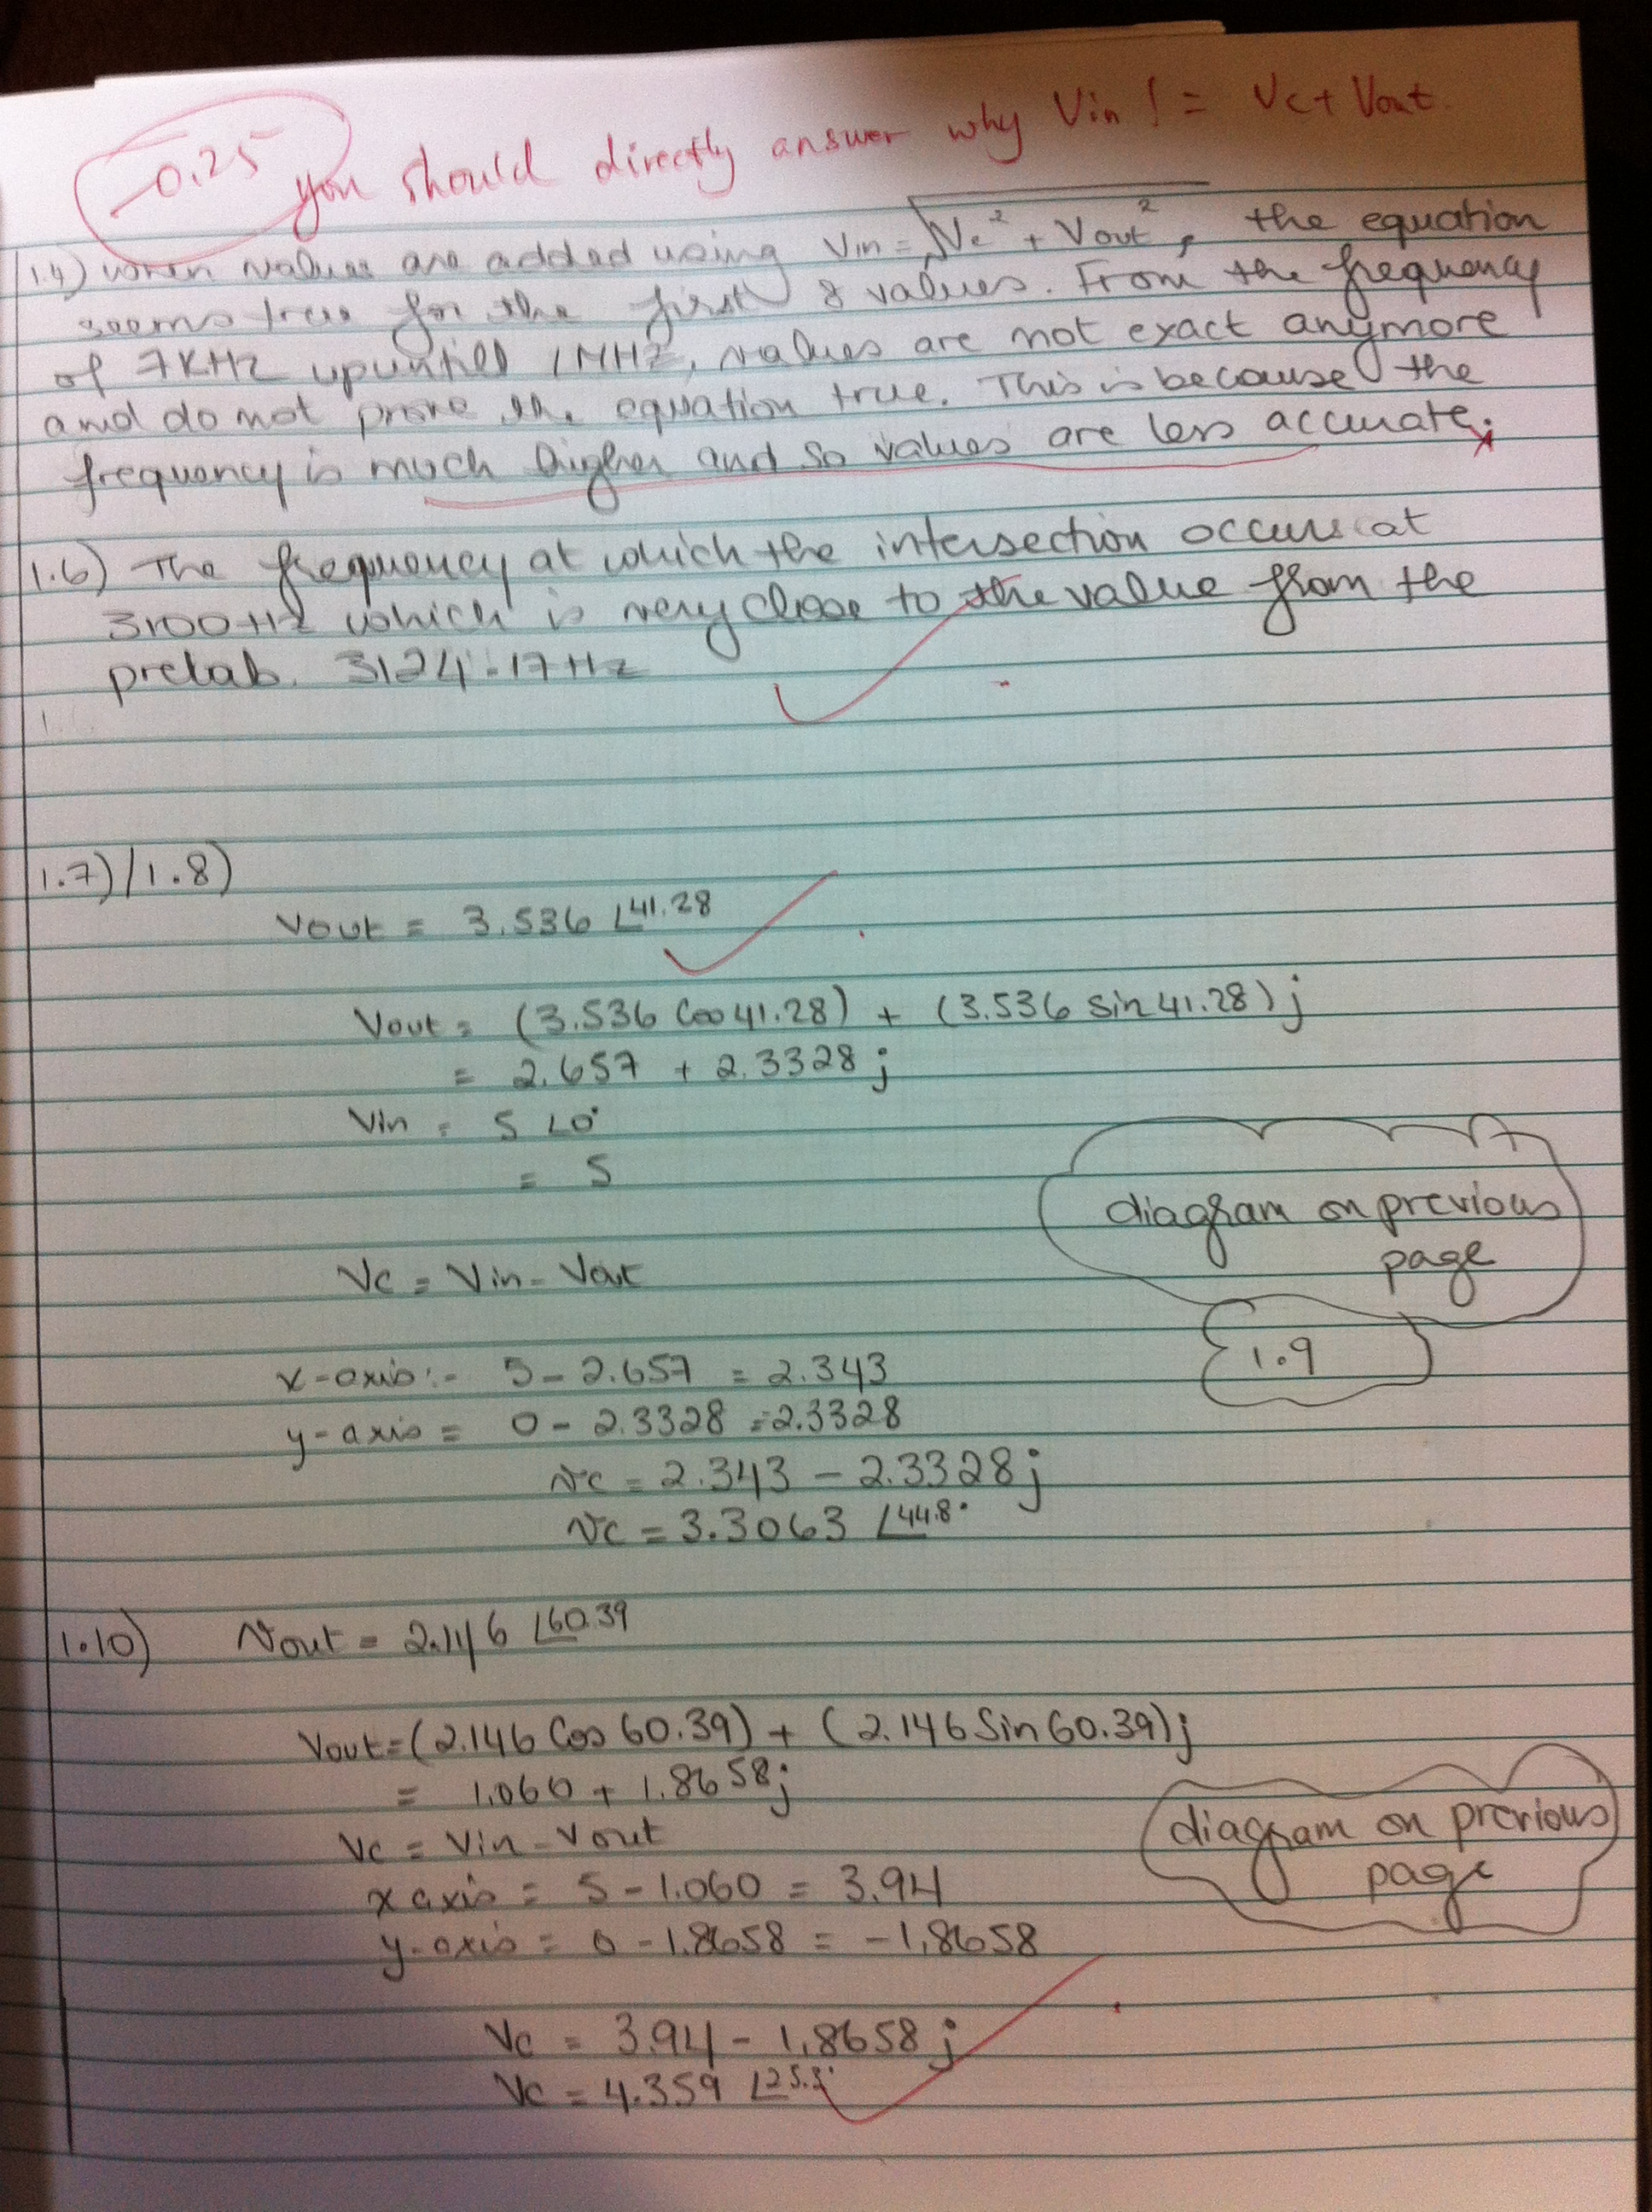 -0.25 you should directly answer why Vin != Vc + Vout.
1.4) when values are added using Vin = √Vc² + Vout², the equation
seems true for the first 8 values. From the frequency
of 7KHz upuntill 1MHz, values are not exact anymore
and do not prove the equation true. This is because the
frequency is much higher and so values are less accurate.
1.6) The frequency at which the intersection occurs at
3100Hz which is very close to the value from the
prelab. 3124.17Hz
1.7)/1.8)
Vout = 3.536 ∠41.28
Vout = (3.536 Cos 41.28) + (3.536 Sin 41.28)j
= 2.657 + 2.3328j
Vin = 5 ∠0°
= 5
diagram on previous
page
Vc = Vin - Vout
1.9
x-axis:- 5 - 2.657 = 2.343
y-axis = 0 - 2.3328 = 2.3328
Vc = 2.343 - 2.3328j
Vc = 3.3063 ∠44.8°
1.10) Vout = 2.146 ∠60.39
Vout = (2.146 Cos 60.39) + (2.146 Sin 60.39)j
= 1.060 + 1.8658j
Vc = Vin - Vout
diagram on previous
page
x axis = 5 - 1.060 = 3.94
y-axis = 0 - 1.8658 = -1.8658
Vc = 3.94 - 1.8658j
Vc = 4.359 ∠25.3°